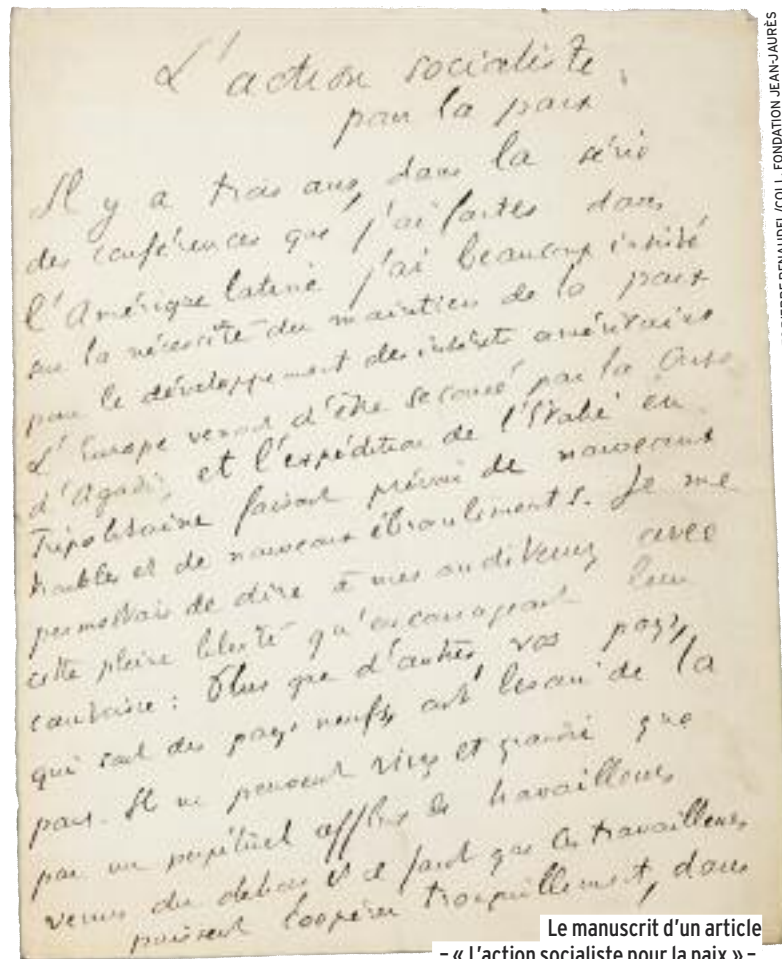 L'action socialiste
pour la paix
Il y a trois ans, dans la série
des conférences que j'ai faites dans
l'Amérique latine j'ai beaucoup insisté
sur la nécessité du maintien de la paix
pour le développement des intérêts américains
L'Europe venait d'être secouée par la crise
d'Agadir, et l'expédition de l'Italie en
Tripolitaine faisait prévoir de nouveaux
troubles et de nouveaux ébranlements. Je me
permettais de dire à mes auditeurs avec
cette pleine liberté qu'encourageait leur
courtoisie : Plus que d'autres vos pays,
qui sont des pays neufs, ont besoin de la
paix. Ils ne peuvent vivre et grandir que
par un perpétuel afflux de travailleurs
venus du dehors et il faut que les travailleurs
puissent coopérer tranquillement, dans
Le manuscrit d'un article
– « L'action socialiste pour la paix » –
RENAUDEL/COLL. FONDATION JEAN-JAURÈS